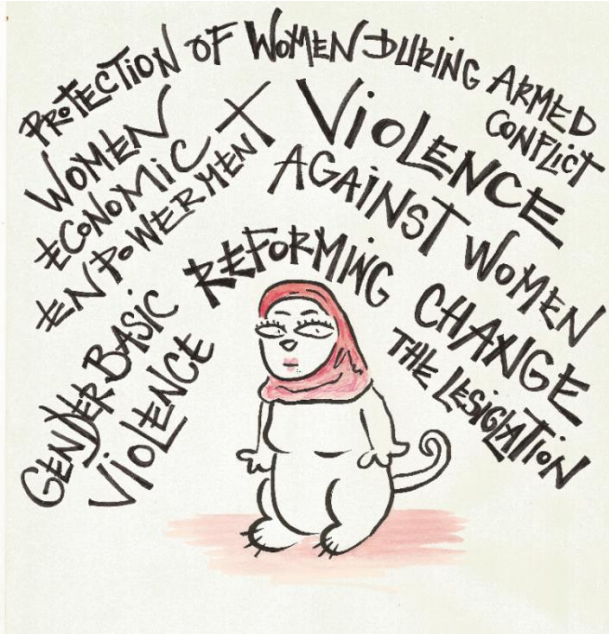 PROTECTION OF WOMEN DURING ARMED
CONFLICT
WOMEN
ECONOMIC
ENPOWERMENT
VIOLENCE
AGAINST WOMEN
REFORMING CHANGE
THE LESIGLATION
GENDER BASIC
VIOLENCE